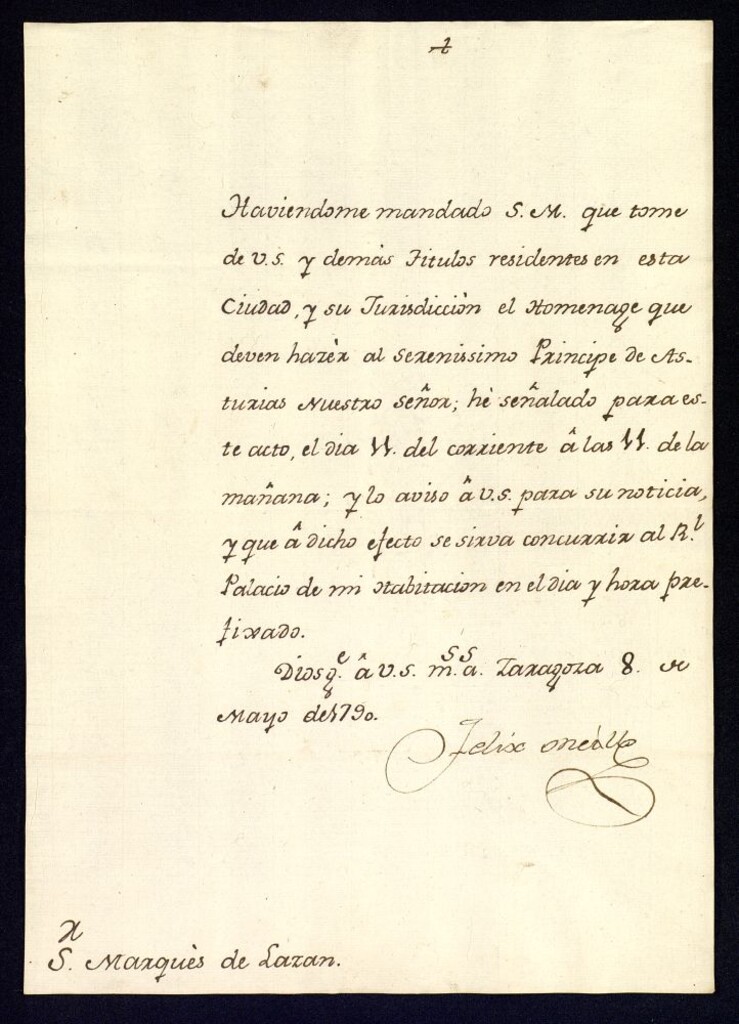 Haviendome mandado S. M. que tome
de V.S. y demás Titulos residentes en esta
Ciudad, y su Jurisdicciòn el Homenage que
deven hazèr al Serenissimo Principe de As-
turias Nuestro Señor; hè señalado para es-
te acto, el dia 11. del corriente â las 11. de la
mañana; y lo aviso â V.S. para su noticia,
y que â dicho efecto se sirva concurrir al R.l
Palacio de mi Habitacion en el dia y hora pre-
fixado.
Dios g.e â V.S. m.s a.s Zaragoza 8. de
Mayo de 1790.
Felix oneàlle
S.r Marquès de Lazan.